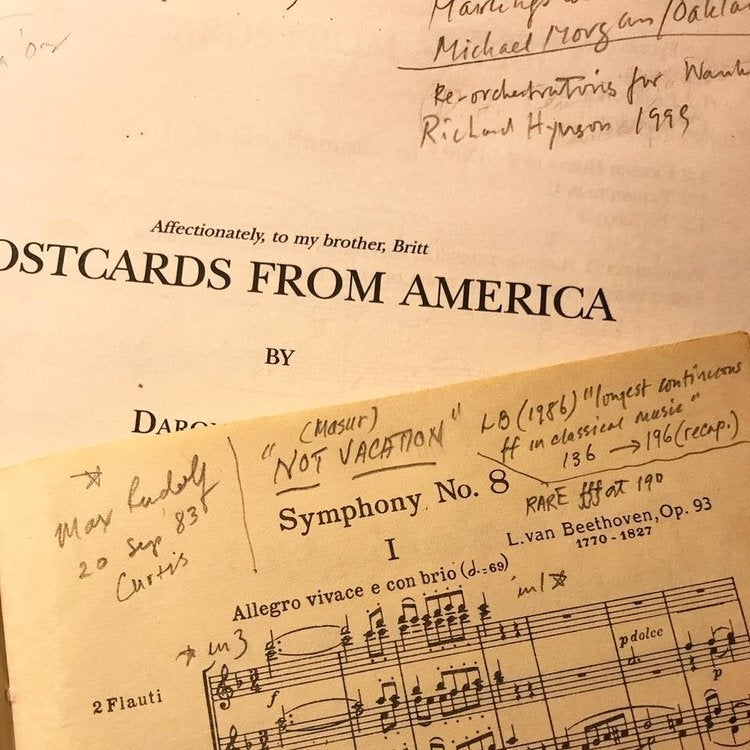 Michael Morgan/Oakla
Re-orchestrations for
Richard Hynson 1999
Affectionately, to my brother, Britt
OSTCARDS FROM AMERICA
BY
DARO
☆
Max Rudolf
20 Sep '83
Curtis
(Masur)
"NOT VACATION"
LB (1986) "longest continuous
ff in classical music"
136 → 196 (recap.)
RARE fff at 190
Symphony No. 8
I
L. van Beethoven, Op. 93
1770 - 1827
Allegro vivace e con brio (𝅗𝅥.=69)
in 1 ☆
☆ in 3
2 Flauti
f
p dolce
p